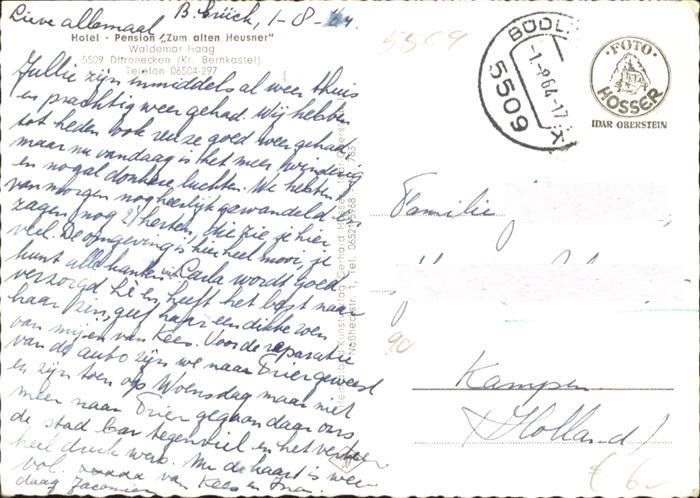 B.brück, 1-8-64.
Lieve allemaal
Hotel - Pension "Zum alten Heusner"
Waldemar Haag
5509 Dhronecken (Kr. Bernkastel)
Telefon 06504-297
Jullie zijn inmiddels al weer thuis
en prachtig weer gehad. Wij hebben
tot heden ook reuze goed weer gehad,
maar nu vandaag is het meer winderig
en nogal donkere luchten. We hebben
van morgen nog heerlijk gewandeld en
zagen nog 2 herten, die zie je hier
veel. De omgeving is hier heel mooi, je
kunt alle kanten uit. Carla wordt goed
verzorgd hè en heeft het best naar
haar zin, geef haar een dikke zoen
van mij en van Kees. Voor de reparatie
van de auto zijn we naar Trier geweest
en zijn toen op Woensdag maar niet
meer naar Trier gegaan daar ons
de stad bar tegenviel en het verkeer
heel druk was. Nu de kaart is weer
vol. van Kees en
daag
5509
BÖDL
-1.-8.64.-17
5509
FOTO
HOSSER
IDAR OBERSTEIN
Familie
Kampen
Holland!
90
€ 6,-